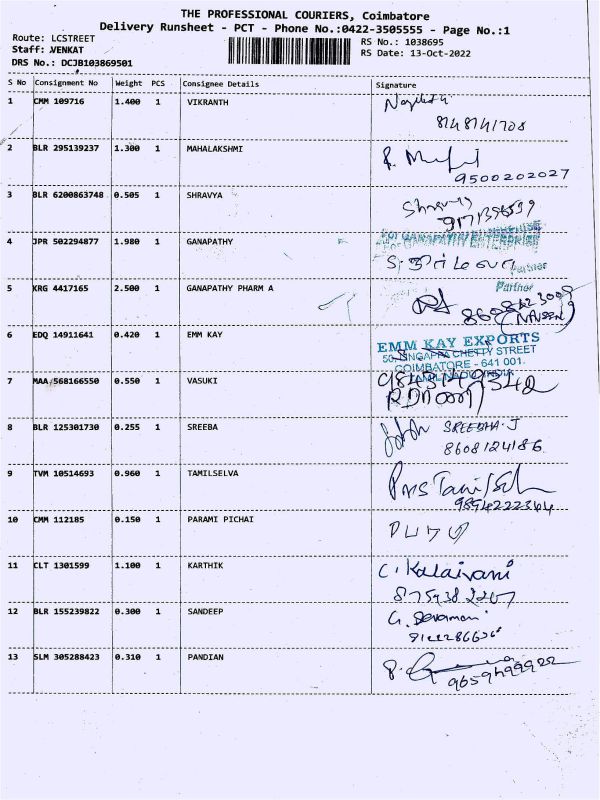 THE PROFESSIONAL COURIERS, Coimbatore
Delivery Runsheet - PCT - Phone No.:0422-3505555 - Page No.:1
Route: LCSTREET
Staff: VENKAT
DRS No.: DCJB103869501
RS No.: 1038695
RS Date: 13-Oct-2022
S No Consignment No Weight PCS Consignee Details Signature
1 CMM 109716 1.400 1 VIKRANTH
8148141708
2 BLR 295139237 1.300 1 MAHALAKSHMI
9500202027
3 BLR 6200863748 0.505 1 SHRAVYA
Shravya
4 JPR 502294877 1.980 1 GANAPATHY
For GANAPATHY ENTERPRISE
For GANAPATHY ENTERPRISE
Partner
5 KRG 4417165 2.500 1 GANAPATHY PHARM A
Partner
(NAVEEN)
6 EDQ 14911641 0.420 1 EMM KAY
EMM KAY EXPORTS
50, LINGAPPA CHETTY STREET
COIMBATORE - 641 001.
TAMILNADU INDIA
7 MAA 568166550 0.550 1 VASUKI
8 BLR 125301730 0.255 1 SREEBA
SREEBHA.J
8608124186
9 TVM 10514693 0.960 1 TAMILSELVA
9894222344
10 CMM 112185 0.150 1 PARAMI PICHAI
11 CLT 1301599 1.100 1 KARTHIK
C. Kalaivani
12 BLR 155239822 0.300 1 SANDEEP
G. Devamani
13 SLM 305288423 0.310 1 PANDIAN
9659499922